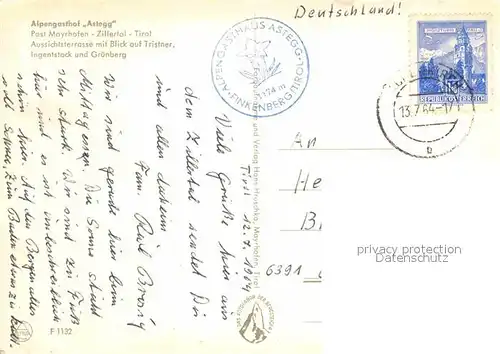 Alpengasthof „Astegg"
Post Mayrhofen - Zillertal - Tirol
Aussichtsterrasse mit Blick auf Tristner,
Ingentstock und Grünberg
Deutschland!
ALPENGASTHAUS ASTEGG
1174 m
FINKENBERG TIROL
REPUBLIK ÖSTERREICH
13.7.64-17
b
Tirol 12.7.1964
Viele Grüße hier aus
dem Zillertal sendet Dir
und allen daheim
Fam. Karl
Wir sind gerade hier beim
Mittagessen. Die Sonne sticht
sehr stark. Wir sind zu Fuß
hier und es ist unbeschreiblich
schön hier. Auf den Bergen alles
voll Schnee. Zum Baden etwas zu kalt.
und Verlag Hans Hruschka, Mayrhofen, Tirol
An
He
B
6391
privacy protection
Datenschutz
F 1132